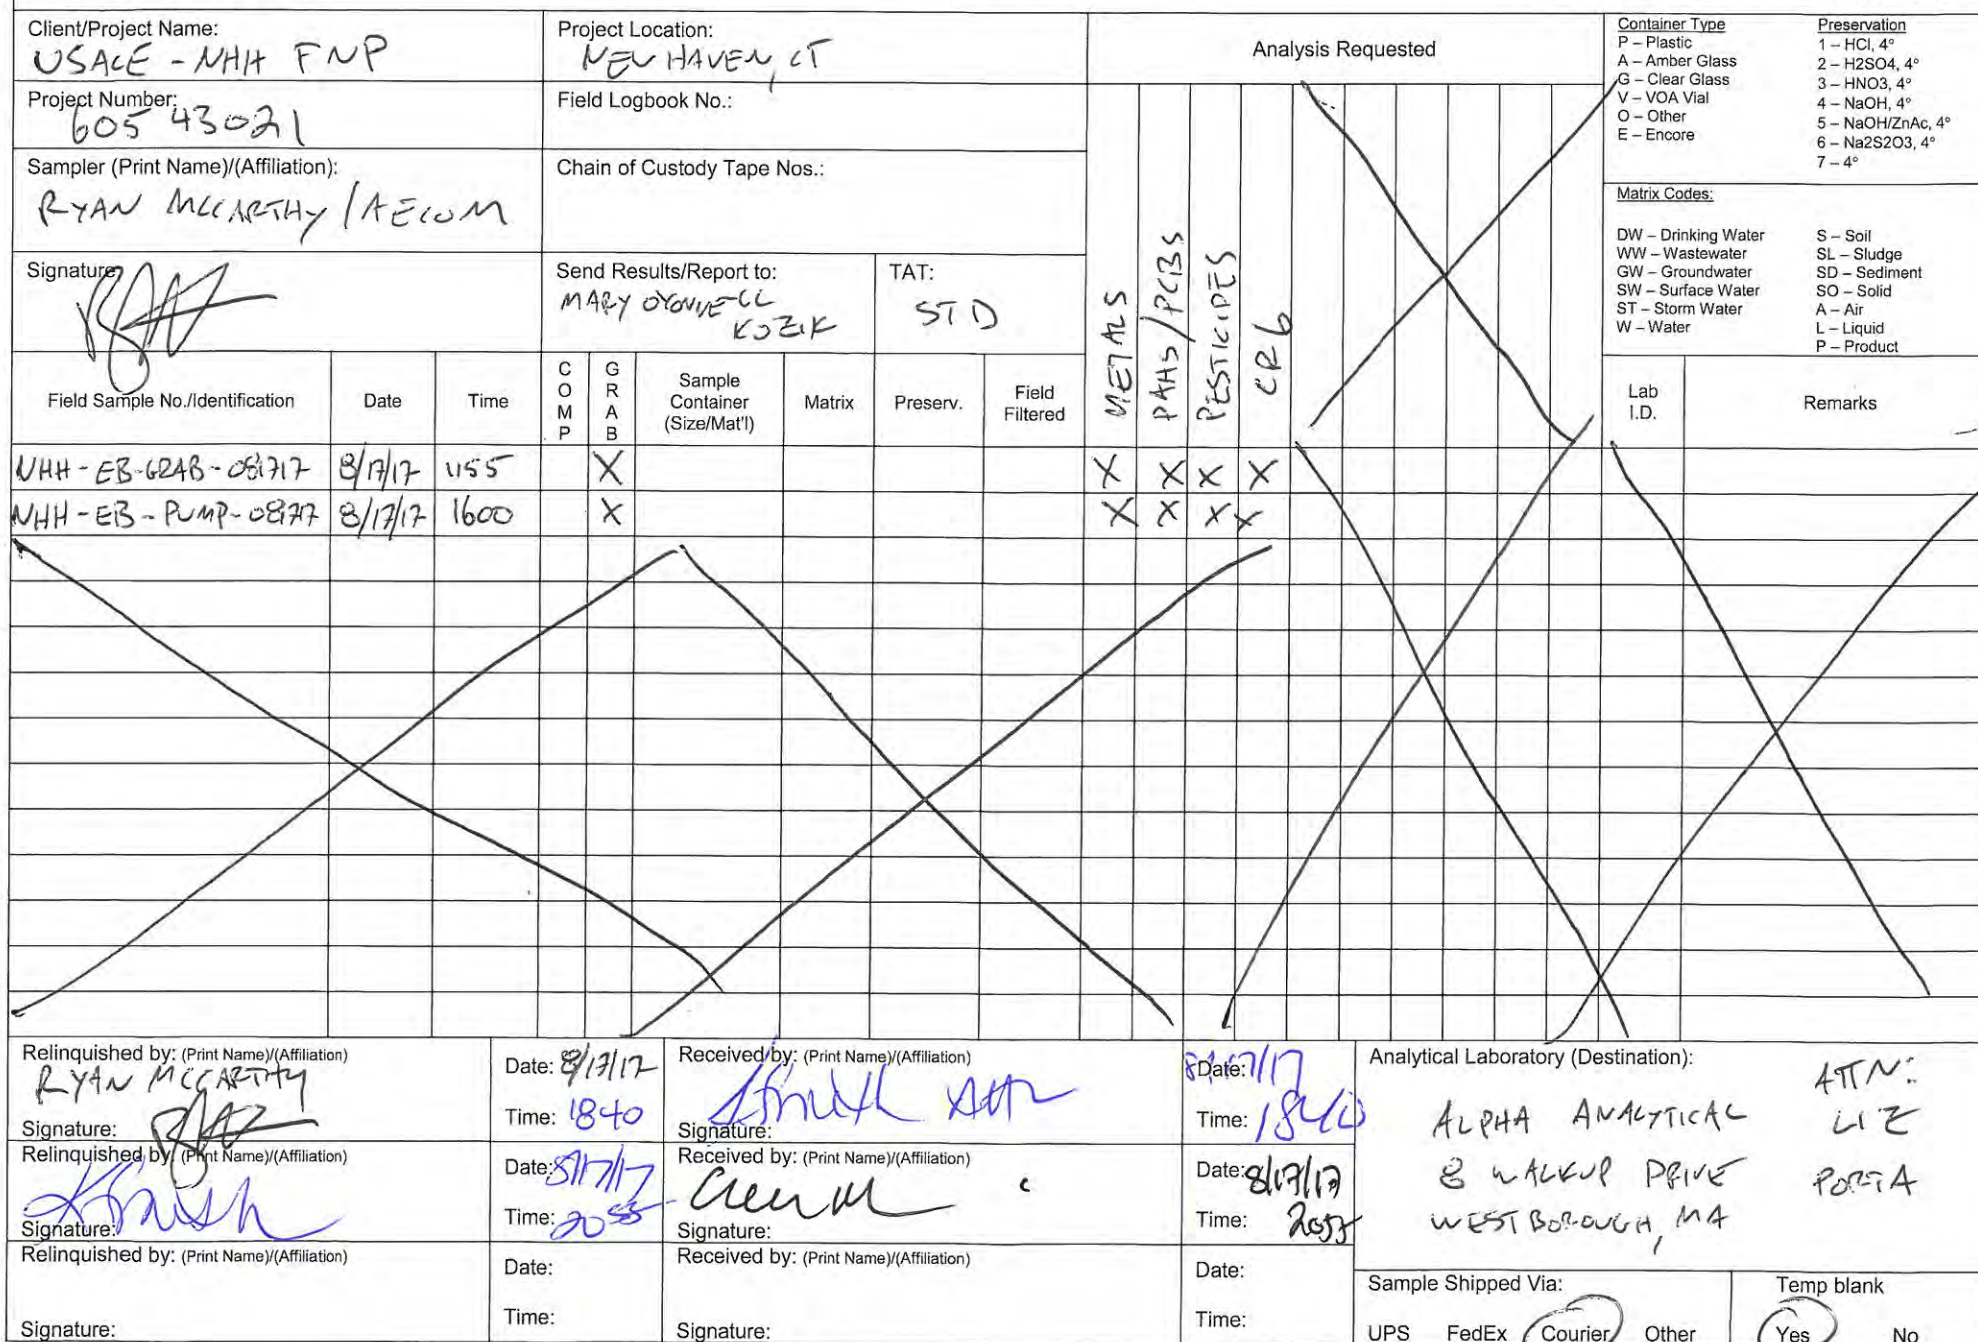 Client/Project Name:
USACE - NHH FNP
Project Location:
NEW HAVEN, CT
Analysis Requested
Container Type
P – Plastic
A – Amber Glass
G – Clear Glass
V – VOA Vial
O – Other
E – Encore
Preservation
1 – HCl, 4°
2 – H2SO4, 4°
3 – HNO3, 4°
4 – NaOH, 4°
5 – NaOH/ZnAc, 4°
6 – Na2S2O3, 4°
7 – 4°
Project Number:
60543021
Field Logbook No.:
Sampler (Print Name)/(Affiliation):
RYAN MCCARTHY / AECOM
Chain of Custody Tape Nos.:
Matrix Codes:
DW – Drinking Water
WW – Wastewater
GW – Groundwater
SW – Surface Water
ST – Storm Water
W – Water
S – Soil
SL – Sludge
SD – Sediment
SO – Solid
A – Air
L – Liquid
P – Product
Signature:
Send Results/Report to:
MARY O'DONNELL
KOZIK
TAT:
STD
METALS
PAHs/PCBS
PESTICIDES
CR6
Field Sample No./Identification
Date
Time
COMP
GRAB
Sample Container (Size/Mat'l)
Matrix
Preserv.
Field Filtered
Lab I.D.
Remarks
NHH-EB-GRAB-081717 8/17/17 1155 X X X X X
NHH-EB-PUMP-081717 8/17/17 1600 X X X X X
Relinquished by: (Print Name)/(Affiliation)
RYAN MCCARTHY
Signature:
Date: 8/17/17
Time: 1840
Received by: (Print Name)/(Affiliation)
Signature:
Date: 8/17/17
Time: 1840
Analytical Laboratory (Destination):
ALPHA ANALYTICAL
8 WALKUP DRIVE
WESTBOROUGH, MA
ATTN:
LIZ
PORTA
Relinquished by: (Print Name)/(Affiliation)
Signature:
Date: 8/17/17
Time: 2055
Received by: (Print Name)/(Affiliation)
Signature:
Date: 8/17/17
Time: 2055
Relinquished by: (Print Name)/(Affiliation)
Signature:
Date:
Time:
Received by: (Print Name)/(Affiliation)
Signature:
Date:
Time:
Sample Shipped Via:
UPS FedEx Courier Other
Temp blank
Yes No